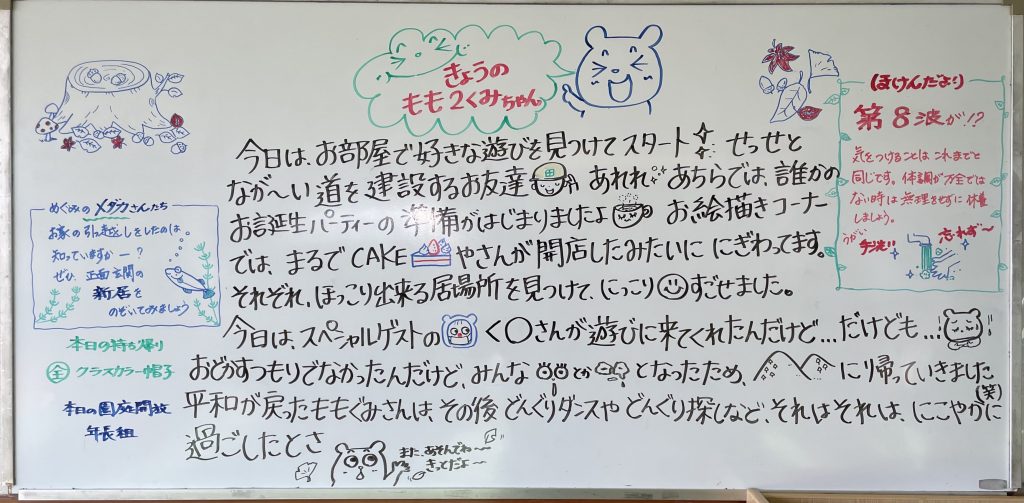 きょうの
もも2くみちゃん
今日は、お部屋で好きな遊びを見つけてスタート せっせと
なが〜い道を建設するお友達 あれれ あちらでは、誰かの
お誕生パーティーの準備がはじまりましたよ お絵描きコーナー
では、まるでCAKEやさんが開店したみたいに にぎわってます。
それぞれ、ほっこり出来る居場所を見つけて、にっこりすごせました。
今日は、スペシャルゲストの く〇さんが遊びに来てくれたんだけど…だけども…
おどかすつもりでなかったんだけど、みんな とか となったため、 にり帰っていきました
(笑)
平和が戻ったももぐみさんは、その後どんぐりダンスや どんぐり探しなど、それはそれは、にこやかに
過ごしたとさ
また、あそんでね〜
きってだよ〜
めぐみのメダカさんたち
お家の引っ越しをしたのは。
知っていますかー?
ぜひ、正面玄関の
新居を
のぞいてみましょう
本日の持ち帰り
全 クラスカラー帽子
本日の園庭開放
年長組
(ほけんだより)
第8波が!?
気をつけることは これまでと
同じです。体調が万全では
ない時は無理をせずに休養
しましょう。
うがい
手洗い
忘れず〜